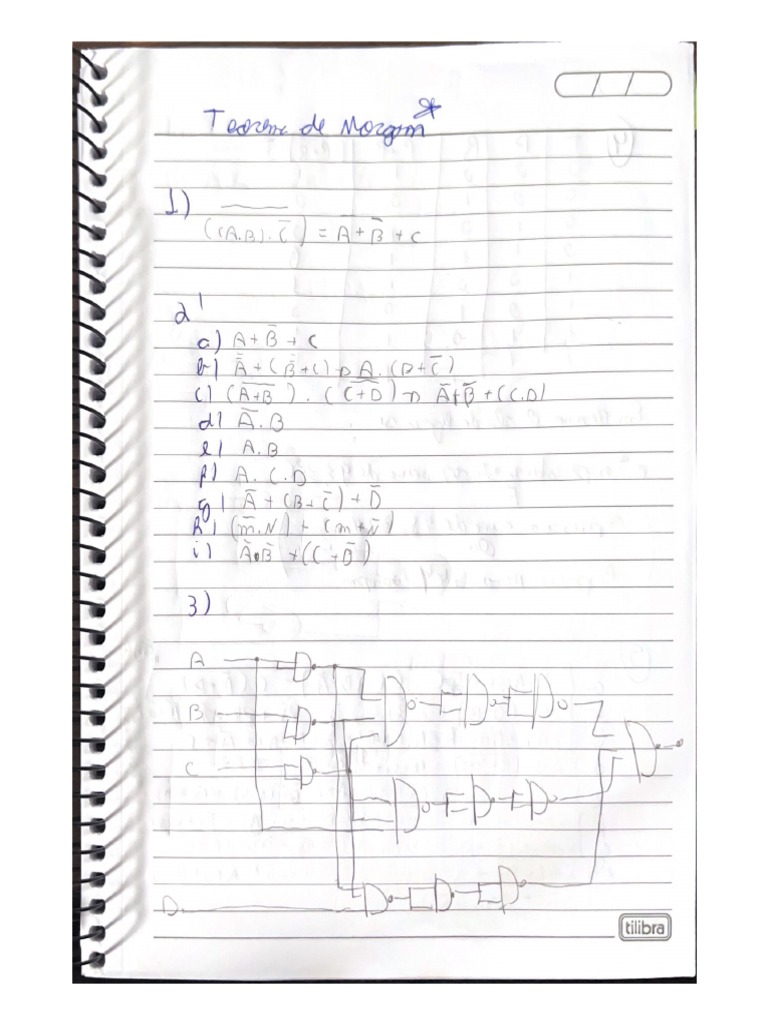 Teorema de Morgan *
1)
((A.B).C̅) = A̅ + B̅ + C
2
a) A + B̅ + C
b) A̅ + (B̅ + C) → A . (B + C̅)
c) (A̅+̅B̅) . (C̅+̅D̅) → A̅ + B̅ + (C.D)
d) A̅ . B
e) A.B
f) A . C . D
g) A̅ + (B + C̅) + D̅
h) (m̅.N) + (m + N̅)
i) A̅.B̅ + (C + D̅)
3)
A
B
C
D
tilibra